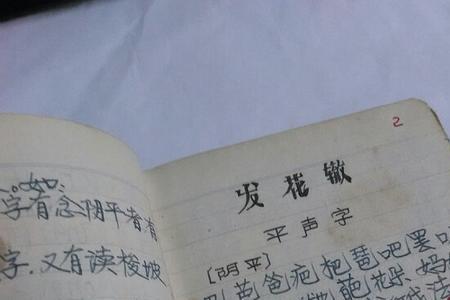 。如
字有念阴平者有
字.又有读梭坡
2
发花辙
平声字
[阴平]
芭爸疤杷琶吧罢
葩 妈